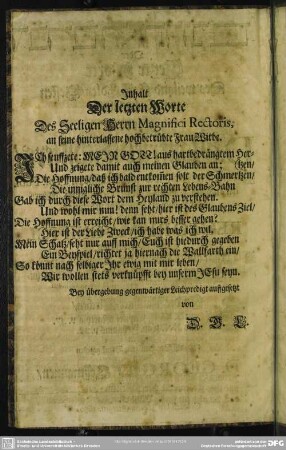 Inhalt
Der letzten Worte
Des Seeligen Herrn Magnifici Rectoris,
an seine hinterlassene hochbetrübte Frau Witbe.
ICh seuffzete: MEIN GOTT! aus hartbedrängtem Her-
Und zeigete damit auch meinen Glauben an: (tzen/
Die Hoffnung/daß ich bald entkommen solt der Schmertzen/
Die inngliche Brunst zur rechten Lebens-Bahn
Gab ich durch diese Wort dem Heyland zu verstehen.
Und wohl mir nun! denn seht/hier ist des Glaubens Ziel/
Die Hoffnung ist erreicht/wie kan mirs besser gehen?
Hier ist der Liebe Zweck/ich habe was ich wil.
Mein Schatz/seht nur auff mich/Euch ist hiedurch gegeben
Ein Beyspiel/richtet ja hiernach die Wallfarth ein/
So könnt nach seeliger Ihr ewig mit mir leben/
Wir wollen stets verknüpfft bey unserm JEsu seyn.
Bey übergebung gegenwärtiger Leichpredigt auffgesetzt
von